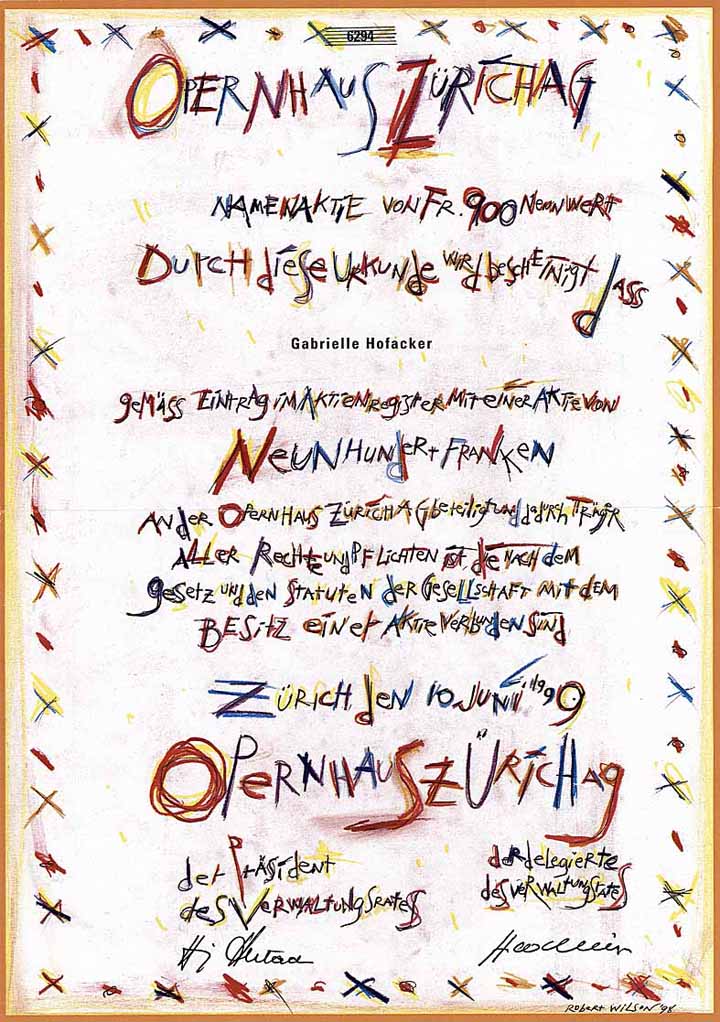 6294
OPERNHAUS ZÜRICH AG
NAMENAKTIE VON FR. 900 NENNWERT
DURCH DIESE URKUNDE WIRD BESCHEINIGT DASS
Gabrielle Hofacker
GEMÄSS EINTRAG IM AKTIENREGISTER MIT EINER AKTIE VON
NEUNHUNDERT FRANKEN
AN DER OPERNHAUS ZÜRICH AG BETEILIGT UND DADURCH TRÄGER
ALLER RECHTE UND PFLICHTEN IST, DIE NACH DEM
GESETZ UND DEN STATUTEN DER GESELLSCHAFT MIT DEM
BESITZ EINER AKTIE VERBUNDEN SIND
ZÜRICH, DEN 10. JUNI 1999
OPERNHAUS ZÜRICH AG
der Präsident
des Verwaltungsrates
der delegierte
des Verwaltungsrates
ROBERT WILSON '98